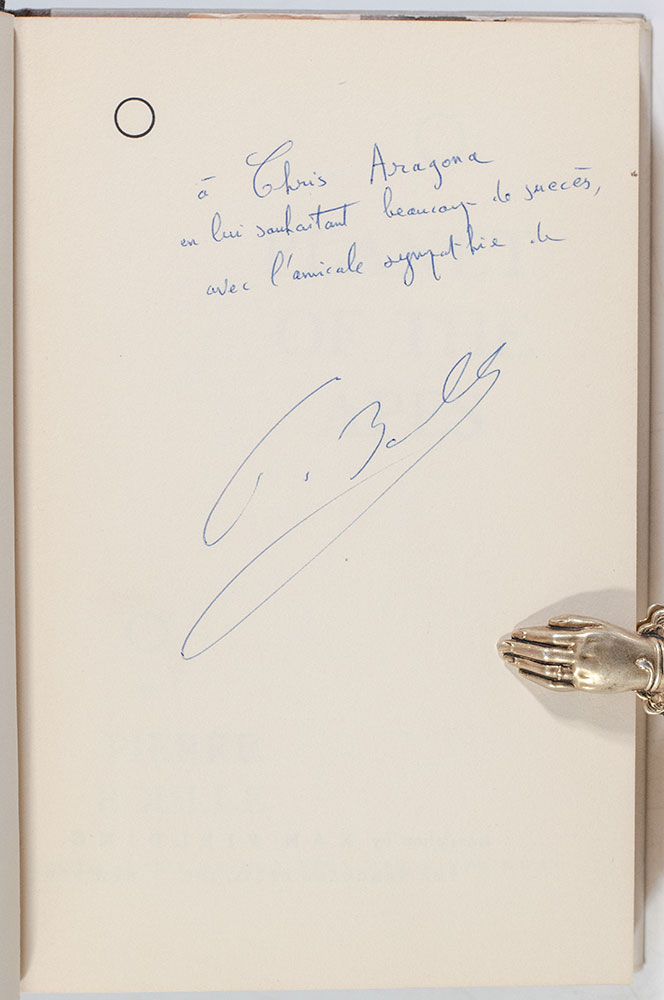 à Chris Aragona
en lui souhaitant beaucoup de succès,
avec l'amicale sympathie de